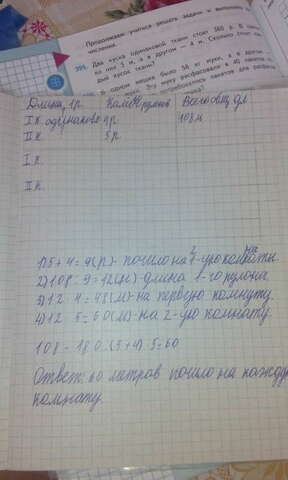 Продолжаем учиться решать задачи и выполнять
числения.
Два куска одинаковой ткани стоят 360 р. В одном
из них 5 м, а в другом — 4 м. Сколько стоит
дый кусок ткани?
В одном мешке было 56 кг муки, а в другом
Длина 1р. Колич рулонов Всего общ дл
I к. одинаково 4 р. 108 м
II к. 5 р
I к.
II к.
1) 5+4=9(р)- пошло на 2 комнаты
2) 108:9=12(м)-длина 1-го рулона
3) 12 4=48(м)-на первую комнату.
4) 12 5=60(м)-на 2-ую комнату.
108 - 180:(5+4) 5=60
Ответ: 60 метров пошло на каждую
комнату.